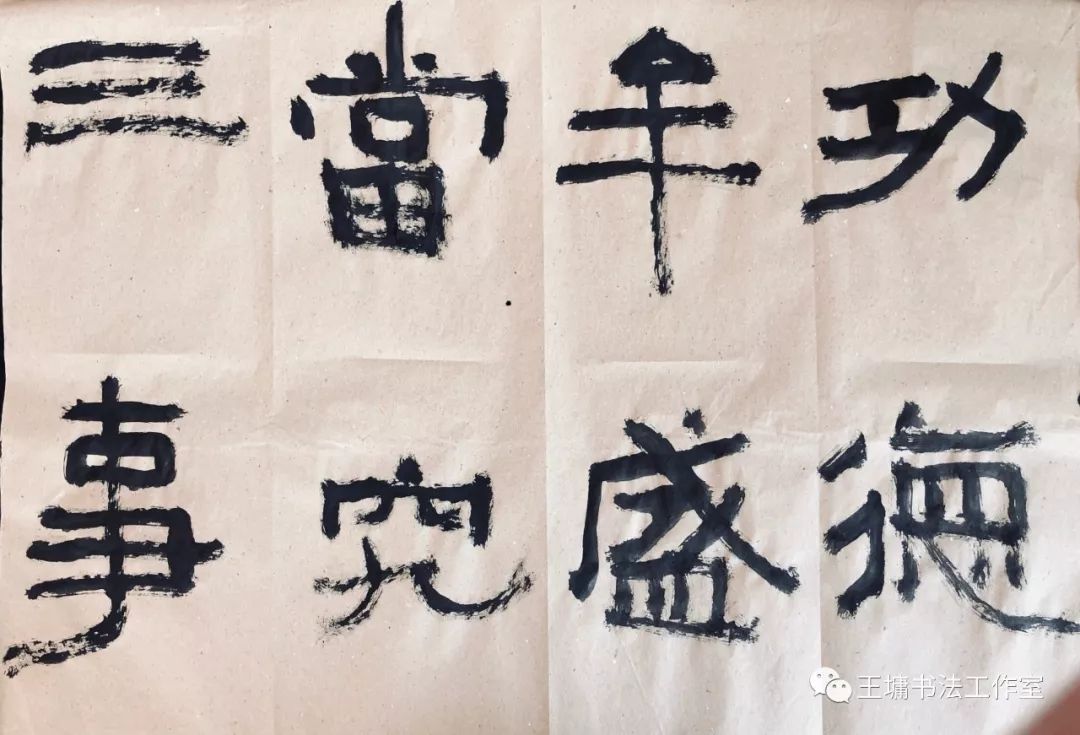 功德
牟盛
當究
三事
王墉书法工作室